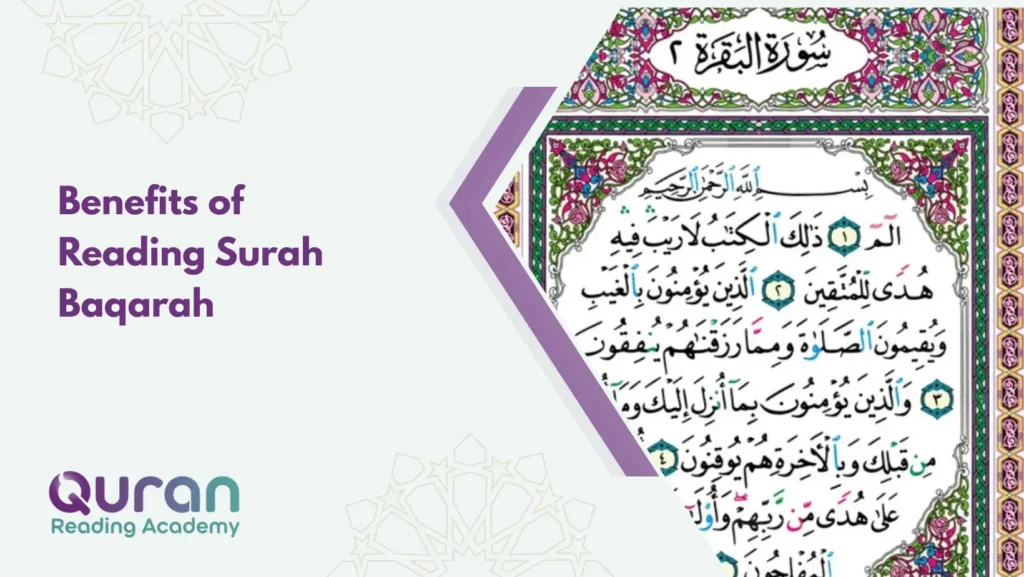 Benefits of
Reading Surah
Baqarah
Quran
Reading Academy
سُورَةُ البَقَرَةِ ٢
بِسْمِ اللَّهِ الرَّحْمَٰنِ الرَّحِيمِ
الٓمٓ ١ ذَٰلِكَ ٱلْكِتَٰبُ لَا رَيْبَ ۛ فِيهِ ۛ
هُدًى لِّلْمُتَّقِينَ ٢ ٱلَّذِينَ يُؤْمِنُونَ بِٱلْغَيْبِ
وَيُقِيمُونَ ٱلصَّلَوٰةَ وَمِمَّا رَزَقْنَٰهُمْ يُنفِقُونَ
٣ وَٱلَّذِينَ يُؤْمِنُونَ بِمَآ أُنزِلَ إِلَيْكَ
مِن قَبْلِكَ وَبِٱلْأَخِرَةِ هُمْ يُوقِنُونَ ٤
عَلَىٰ هُدًى مِّن رَّبِّهِمْ
ٱلْمُفْلِحُونَ